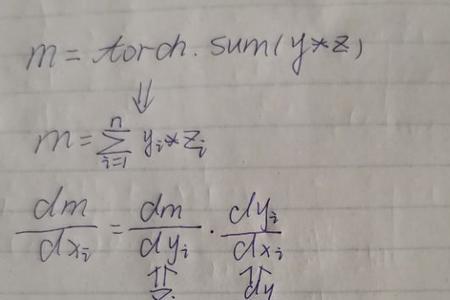 m = torch.sum(y*z)
⇓
m = Σ_{i=1}^{n} y_i * z_i
dm/dx_i = dm/dy_i · dy_i/dx_i
⇑ ⇑
dy